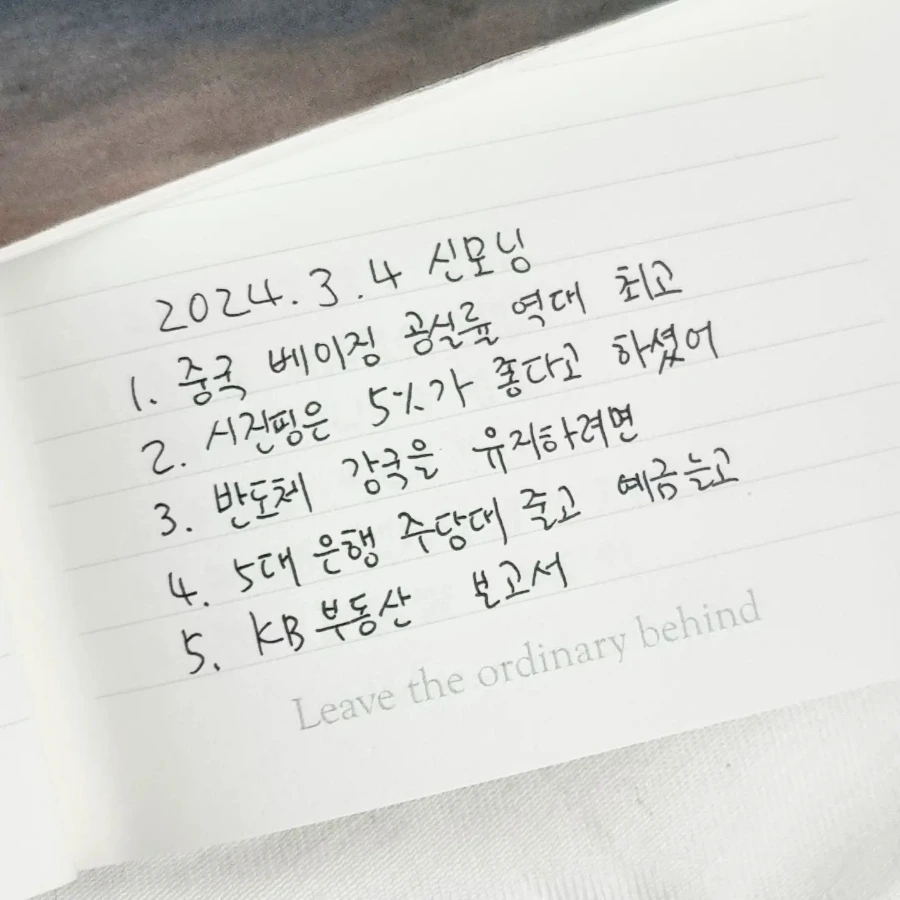 2024.3.4 신모닝
1. 중국 베이징 공실률 역대 최고
2. 시진핑은 5%가 좋다고 하셨어
3. 반도체 강국을 유지하려면
4. 5대 은행 주담대 줄고 예금늘고
5. KB부동산 보고서
Leave the ordinary behind